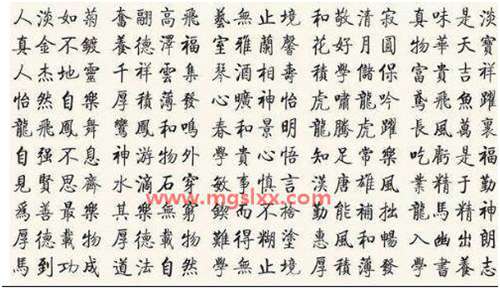 人淡如菊 奮翮高飛 藝無止境 和敬清寂 真味是淡
真金不鍍 養德澤福 室雅蘭馨 花好月圓 物華天寶
人杰地靈 千祥雲集 琴酒相壽 學儲保 富貴吉祥
怡然自樂 厚積薄發 心曠神怡 虎嘯龍吟 鳶飛魚躍
龍飛鳳舞 鸞鳳和鳴 春和景明 龍騰虎躍 長風萬裏
自强不息 神游物外 學貴心悟 知足常樂 吃虧是福
見賢思齊 水滴石穿 敏事慎言 漢唐雄風 業精于勤
www.mgslxx.com
爲善最樂 其樂無窮 鍥而不捨 勤能補拙 馬精神
厚德載物 厚德載物 難得糊塗 惠風和暢 入幽出朗
馬到功成 道法自然 學無止境 厚積薄發 學書養志